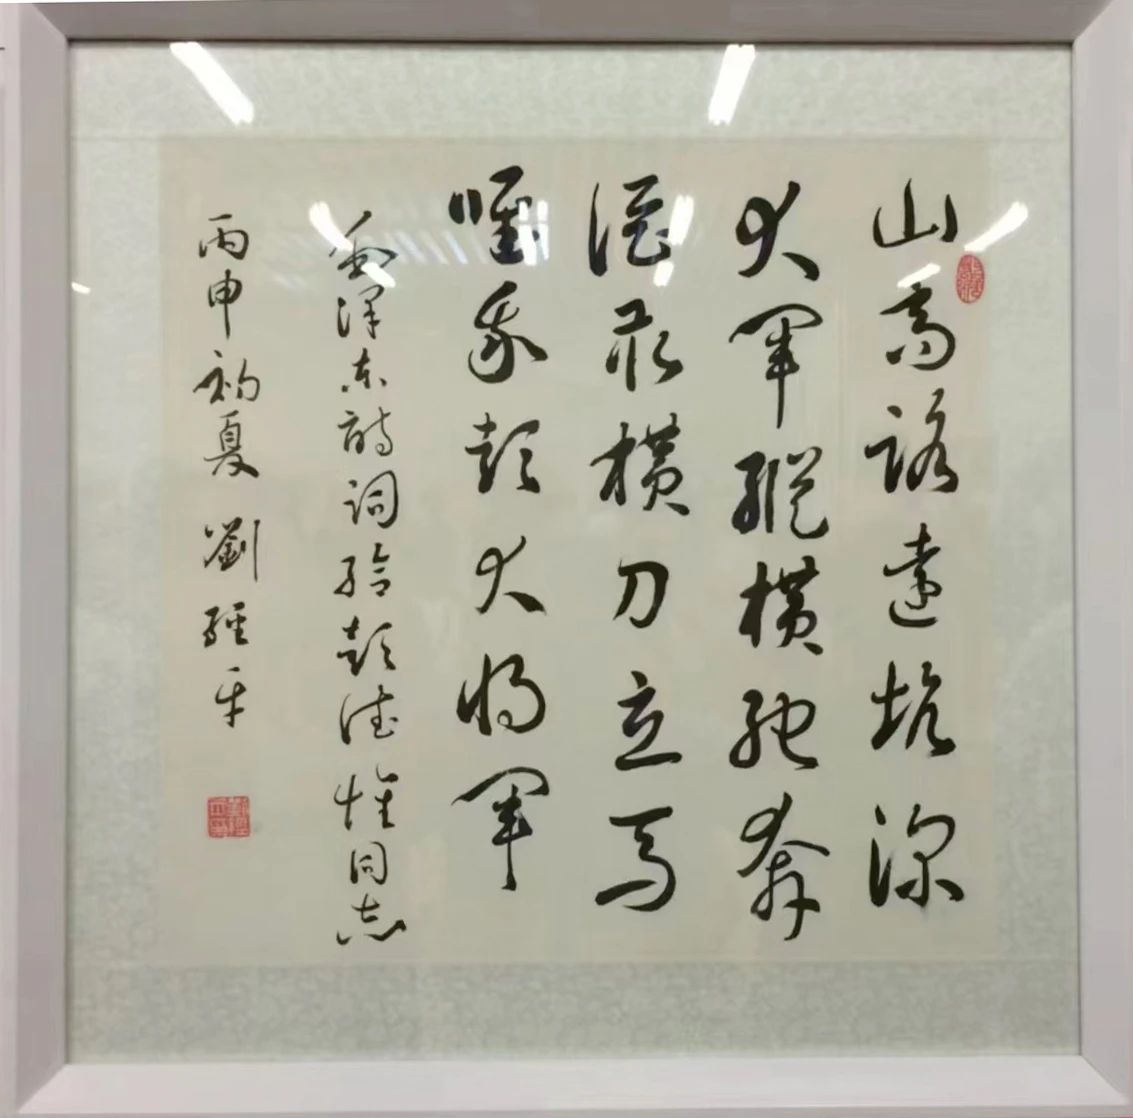 山高路遠坑深
大軍縱橫馳奔
誰敢橫刀立馬
唯我彭大將軍
毛澤東詩詞給彭德懷同志
丙申初夏 劉經平